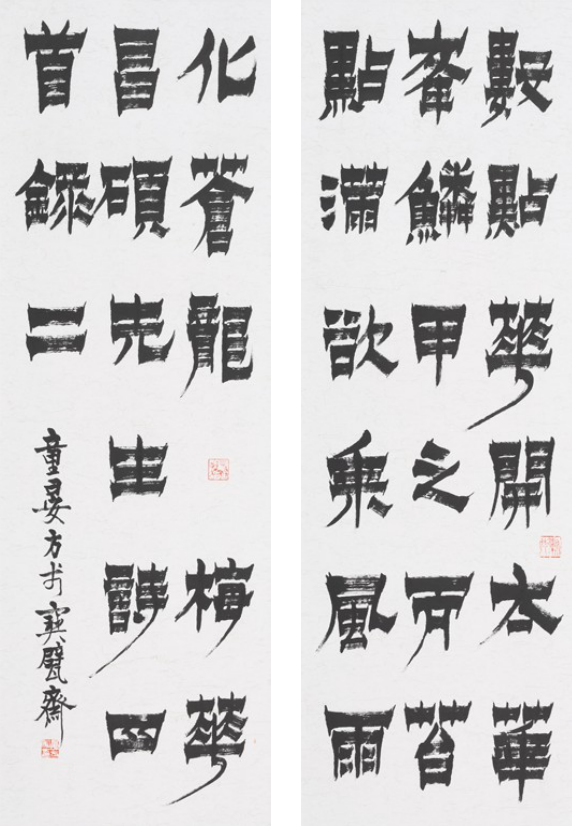 數點華開太華
峯鱗甲之而苔
點滿欲乘風雨
化蒼龍 梅華
昌碩先生詩四
首錄二
童晏方於寶甓齋